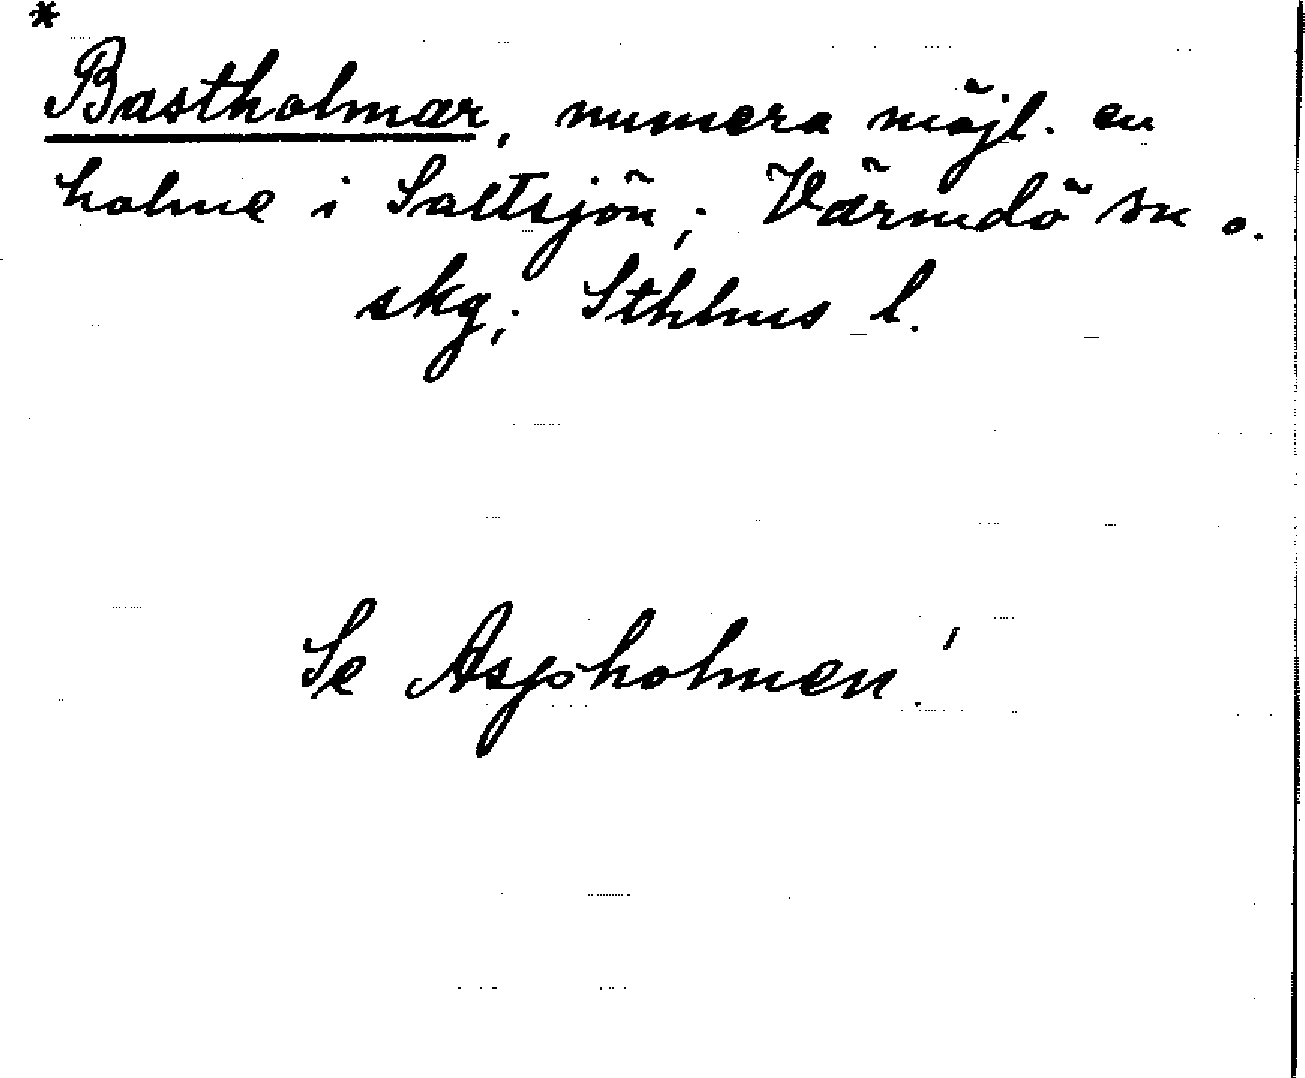 *
Bastholmar, numera möjl. en
holme i Saltsjön; Värmdö sn o.
skg; Sthlms l.
Se Aspholmen!